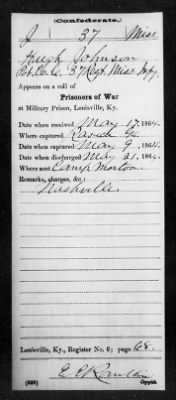 (Confederate.)
J 37 Miss
Hugh Johnson
Pvt Co. C. 37 Regt. Miss Infy.
Appears on a roll of
Prisoners of War
at Military Prison, Louisville, Ky.
Date when received May 17, 1864.
Where captured Ga
Date when captured May 9, 1864.
Date when discharged May 21, 1864.
Where sent Camp Morton.
Remarks, charges, &c.:
Nashville.
Louisville, Ky., Register No. 6; page 68.
Copyist.